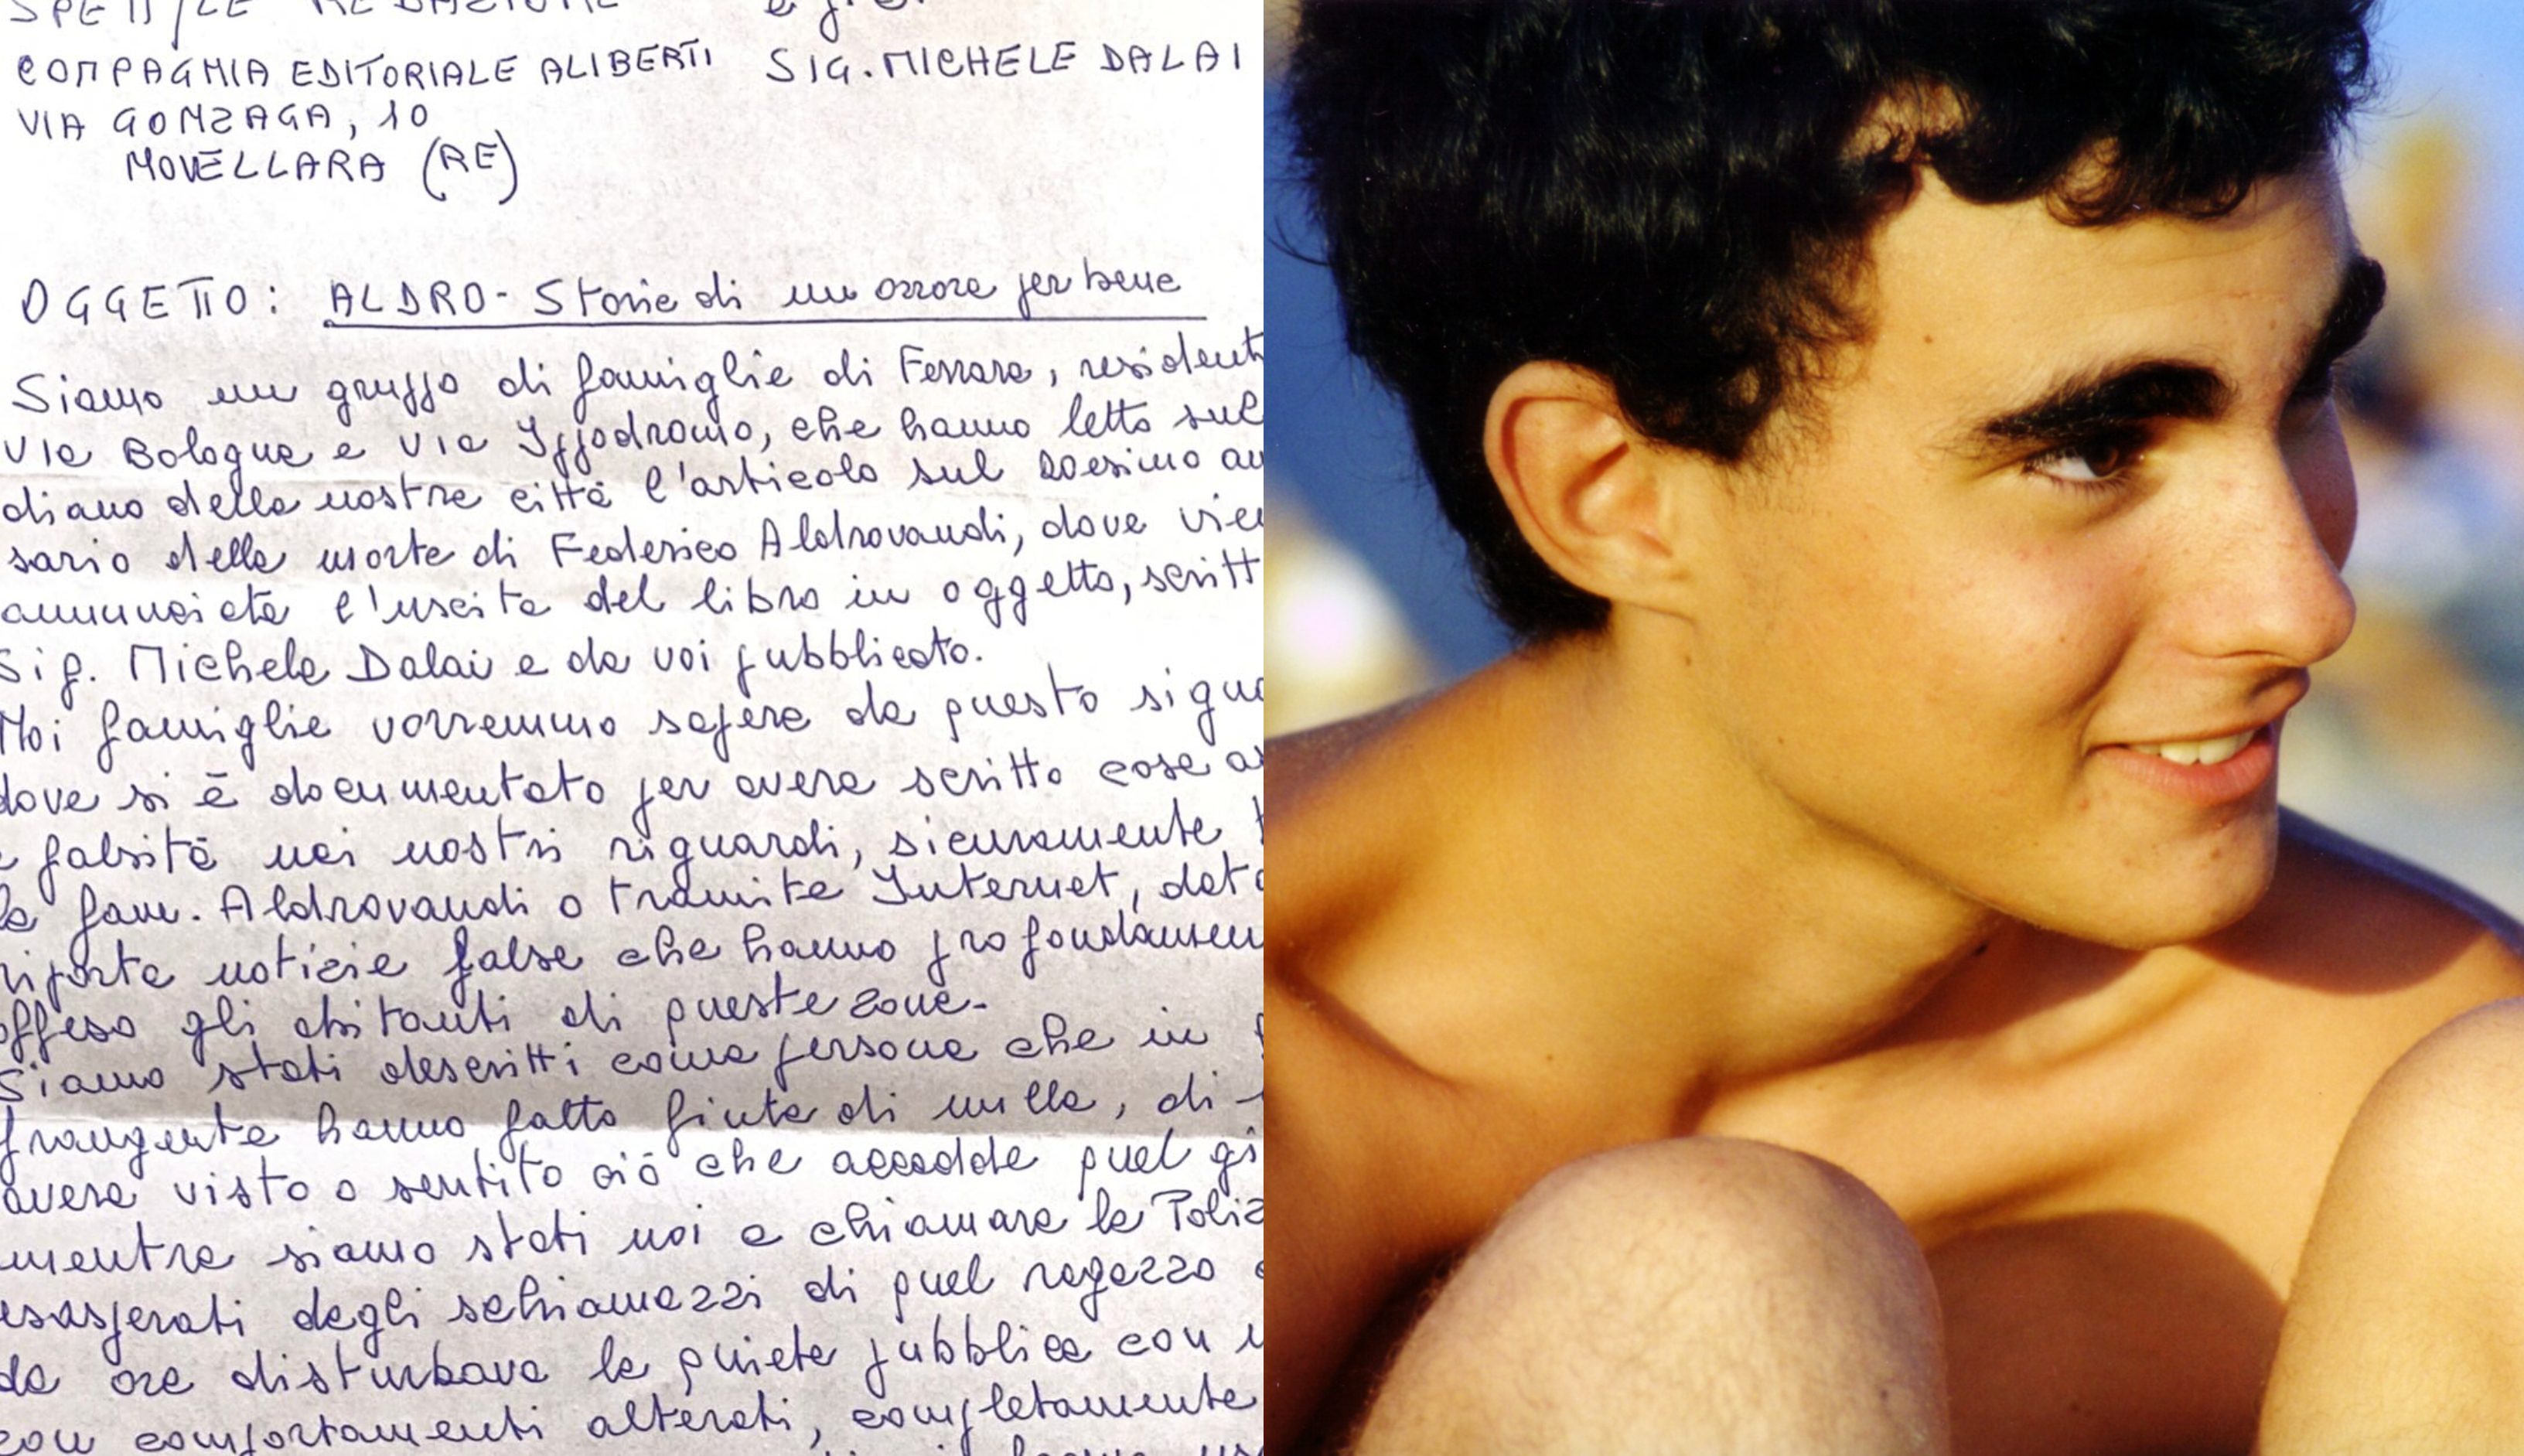 SPETT/LE REDAZIONE e p.c.
COMPAGNIA EDITORIALE ALIBERTI SIG. MICHELE DALAI
VIA GONZAGA, 10
NOVELLARA (RE)
OGGETTO: ALDRO - Storia di un orrore per bene
Siamo un gruppo di famiglie di Ferrara, resident
Via Bologna e Via Ippodromo, che hanno letto sul
diano della nostra città l'articolo sul 20esimo an
sario della morte di Federico Aldrovandi, dove vie
annunciata l'uscita del libro in oggetto, scritt
Sig. Michele Dalai e da voi pubblicato.
Noi famiglie vorremmo sapere da questo signo
dove si è documentato per avere scritto cose as
e falsità nei nostri riguardi, sicuramente
la fam. Aldrovandi o tramite Internet, dato
riporta notizie false che hanno profondamen
offeso gli abitanti di queste zone-
Siamo stati descritti come persone che in
frangente hanno fatto finta di nulla, di
avere visto o sentito ciò che accadde quel gi
mentre siamo stati noi a chiamare la Poliz
esasperati dagli schiamazzi di quel ragazzo
da ore disturbava la quiete pubblica con
con comportamenti alterati, completamente